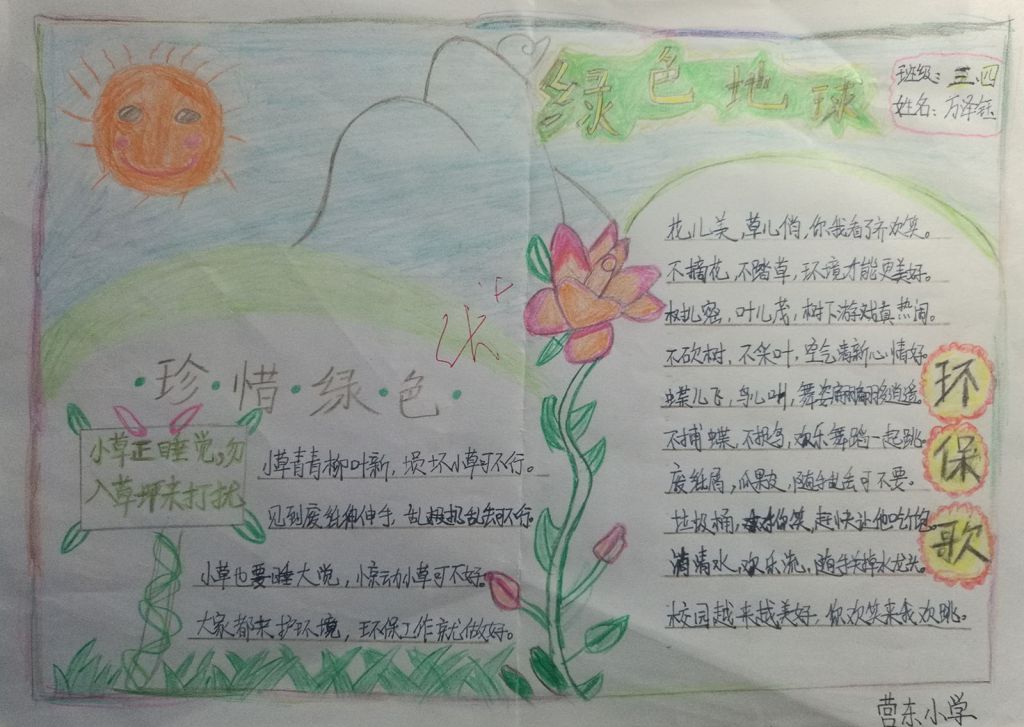 绿色地球
班级：三.四
姓名：万泽钰
珍·惜·绿·色
小草正睡觉,勿
入草坪来打扰
小草青青柳叶新，损坏小草可不行。
见到废纸伸手，乱扔乱丢可不行。
小草也要睡大觉，惊动小草可不好。
大家都来护环境，环保工作就做好。
环保歌
花儿美，草儿俏，你我看了齐欢笑。
不摘花，不踏草，环境才能更美好。
树儿密，叶儿茂，树下游戏真热闹。
不砍树，不采叶，空气清新心情好。
蝶儿飞，鸟儿叫，舞姿翩翩逍遥。
不捕蝶，不捉鸟，欢乐舞蹈一起跳。
废纸屑，瓜果皮，随手乱丢可不要。
垃圾桶，笑，赶快让他吃饱。
清清水，欢乐流，随手关掉水龙头。
校园越来越美好，你欢笑来我欢跳。
营东小学